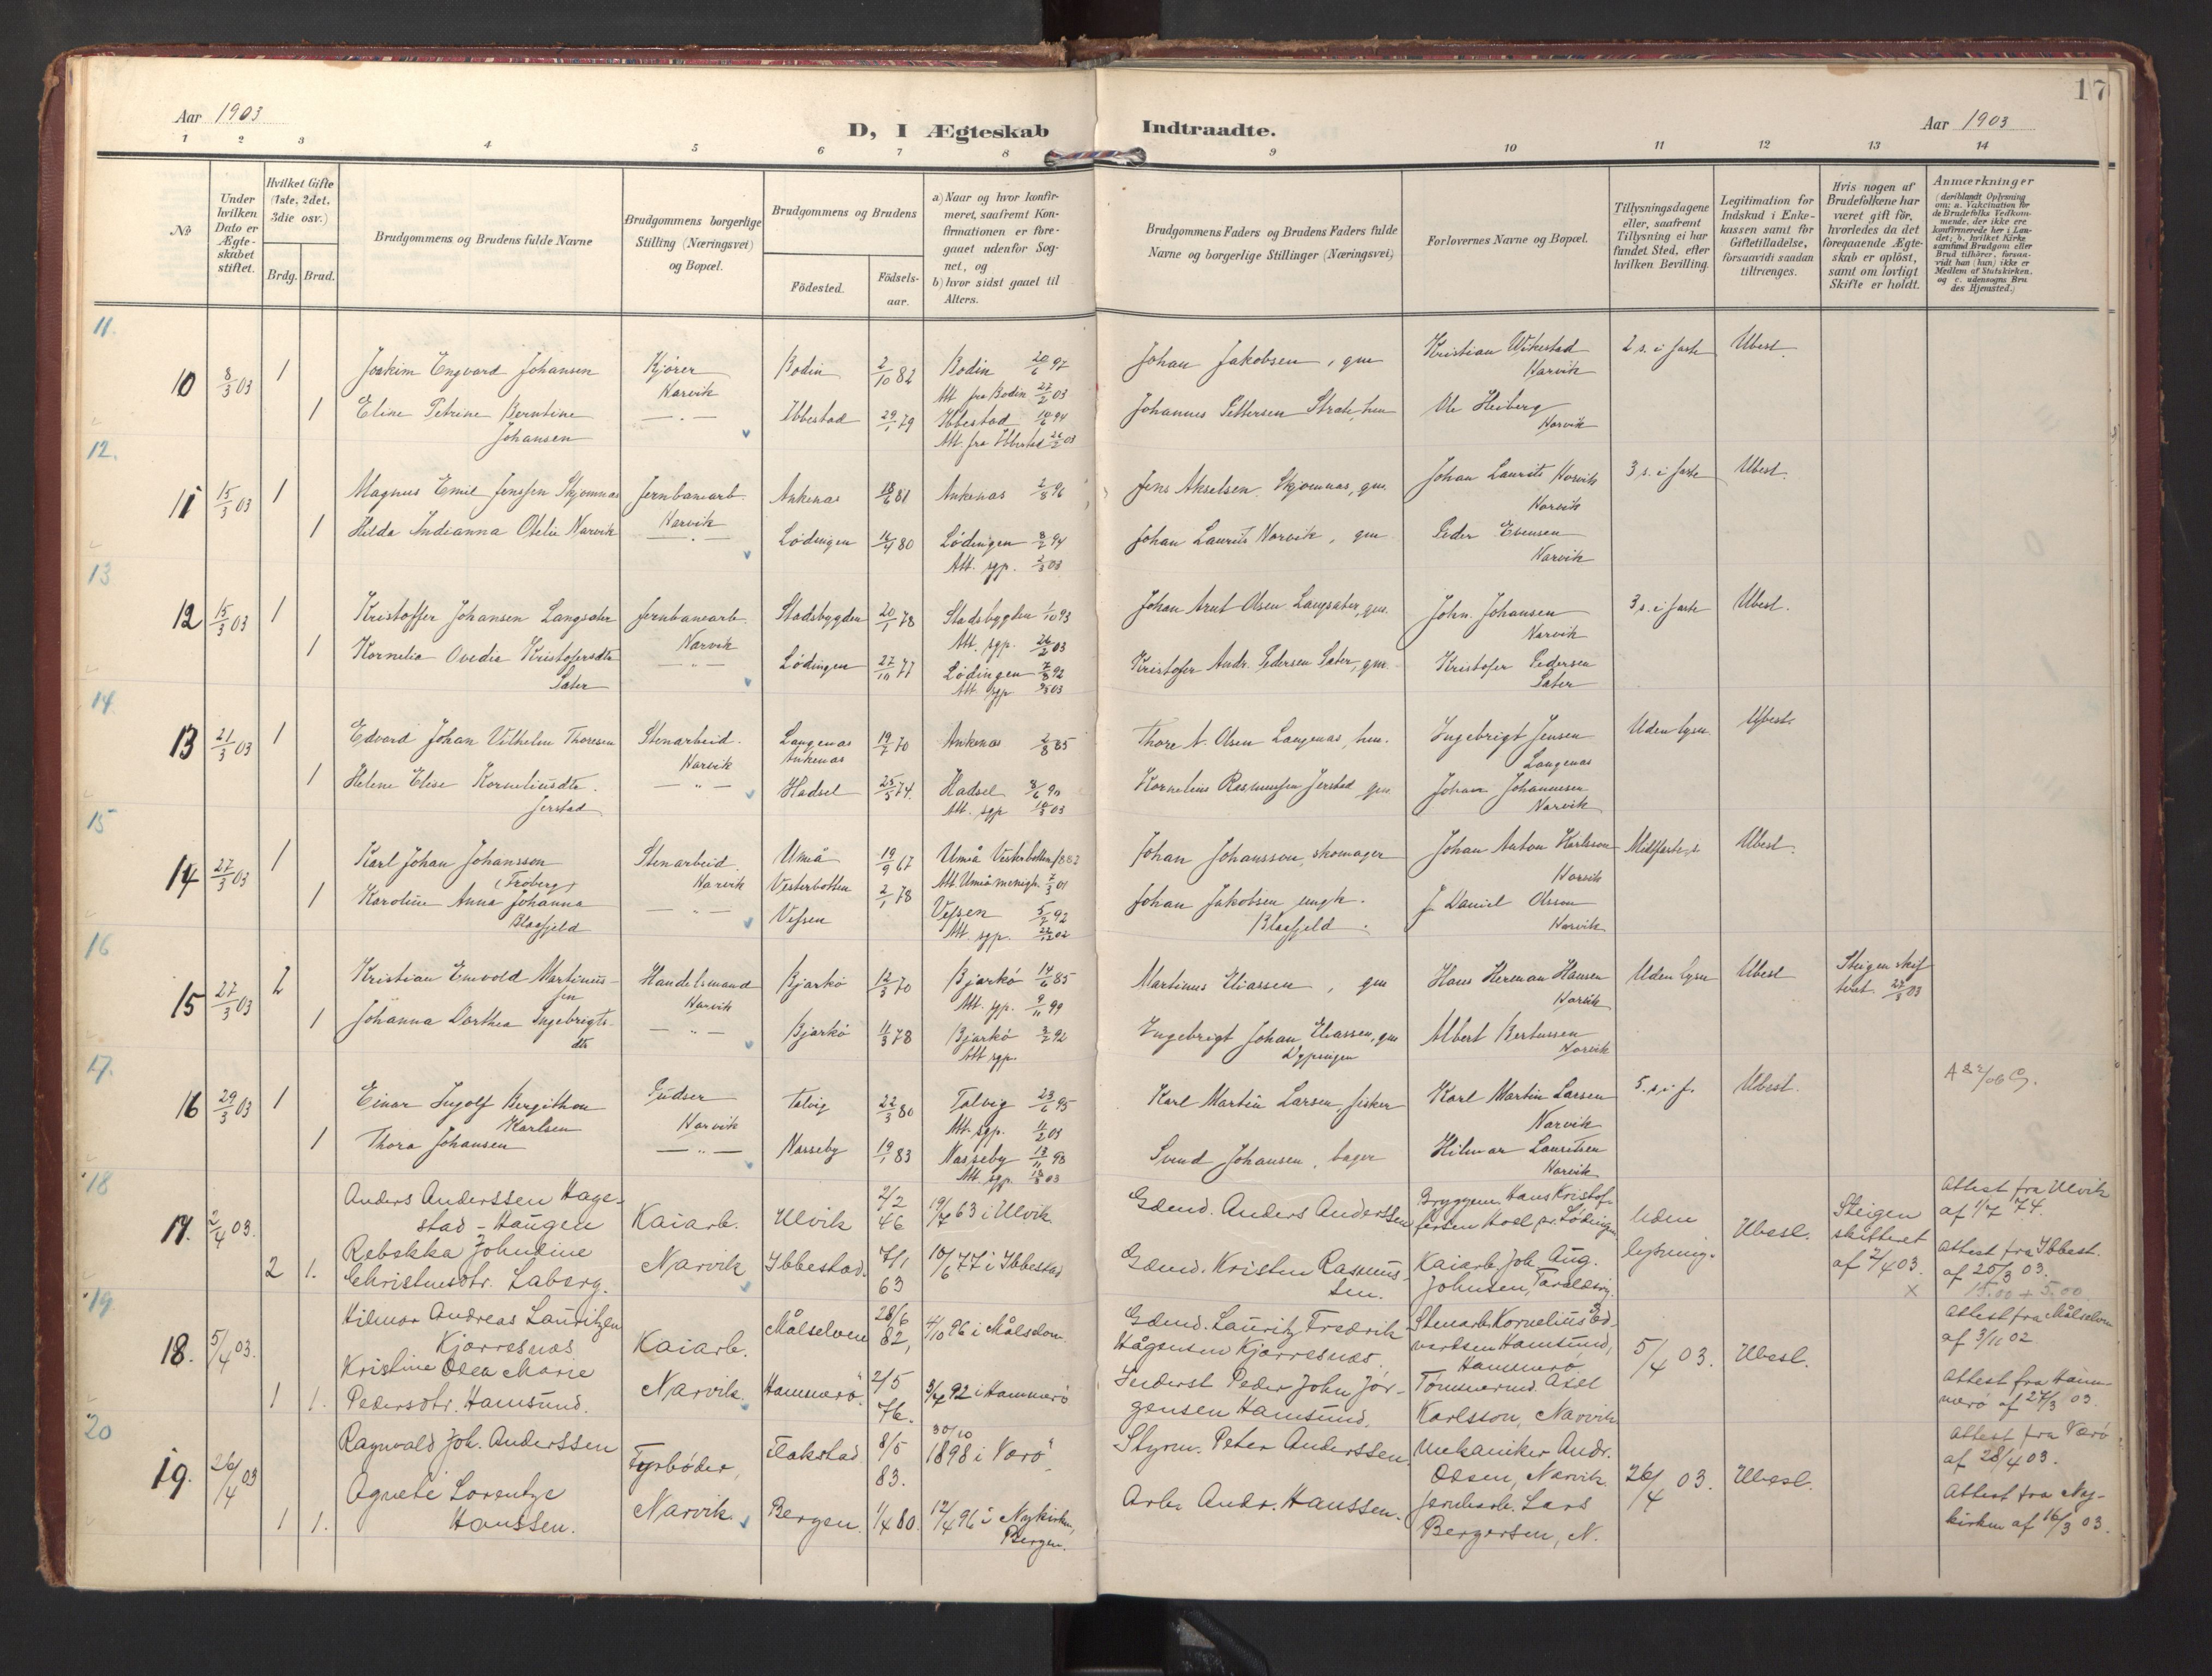 17
Aar 1903
D, I Ægteskab Indtraadte.
Aar 1903
1 2 3 4 5 6 7 8 9 10 11 12 13 14
No
Under hvilken Dato er Ægteskabet stiftet.
Hvilket Gifte (1ste, 2det, 3die osv.)
Brdg. Brud.
Brudgommens og Brudens fulde Navne
Brudgommens borgerlige Stilling (Næringsvei) og Bopæl.
Brudgommens og Brudens
Fødested.
Fødselsaar.
a) Naar og hvor konfirmeret, saafremt Konfirmationen er foregaaet udenfor Sognet, og
b) hvor sidst gaaet til Alters.
Brudgommens Faders og Brudens Faders fulde Navne og borgerlige Stillinger (Næringsvei)
Forlovernes Navne og Bopæl.
Tillysningsdagene eller, saafremt Tillysning ei har fundet Sted, efter hvilken Bevilling.
Legitimation for Indskud i Enkekassen samt for Giftetilladelse, forsaavidt saadan tiltrænges.
Hvis nogen af Brudefolkene har været gift før, hvorledes da det foregaaende Ægteskab er opløst, samt om lovligt Skifte er holdt.
Anmærkninger
(deriblandt Oplysning om: a. Vakcination for de Brudefolks Vedkommende, der ikke ere konfirmerede her i Landet; b. hvilket Kirkesamfund Brudgom eller Brud tilhører, forsaavidt han (hun) ikke er Medlem af Statskirken, og c. udensogns Brudes Hjemsted.)
11.
10 8/3 03 1 Joakim Engvard Johansen Kjører Bodin 2/10 82 Bodin 20/6 97 Johan Jakobsen, gm Kristian Wikestad 2 s. i faste Ubesl.
Narvik Att. fra Bodin 27/2 03 Narvik
1 Eline Petrine Berntine — " — Ibbestad 29/1 79 Ibbestad 14/6 94 Johannes Pettersen Strate, hm Ole Heiberg
Johansen Att. fra Ibbestad 26/2 03 Narvik
12.
11 15/3 03 1 Magnus Emil Jenssen Skjomnæs Jernbanearb. Ankenæs 18/6 81 Ankenæs 2/8 96 Jens Akselsen Skjomnæs, gm. Johan Laurits Narvik 3 s. i faste Ubesl.
Narvik Narvik
1 Hilda Indianna Otelie Narvik — " — Lødingen 16/4 80 Lødingen 8/7 94 Johan Laurits Narvik, gm Peder Evensen
Att. sgp. 2/3 03 Narvik
13
12 15/3 03 1 Kristoffer Johansen Langsæter Jernbanearb. Stadsbygden 20/1 78 Stadsbygden 1/10 93 Johan Arnt Olsen Langsæter, gm. John. Johansen 3 s. i faste Ubesl.
Narvik Att. sgp. 26/2 03 Narvik
1 Kornelia Ovedia Kristofersdtr — " — Lødingen 27/10 77 Lødingen 7/8 92 Kristofer Andr. Pedersen Sæter, gm. Kristofer Pedersen
Sæter Att. sgp 9/3 03 Sæter
14.
13 21/3 03 1 Edvard Johan Vilhelm Thoresen Stenarbeid. Langenæs 19/7 70 Ankenæs 2/8 85 Thore A. Olsen Langenæs, hm. Ingebrigt Jensen Uden lysn. Ubesl.
Narvik Ankenæs Langenæs
1 Helene Elise Korneliusdtr. — " — Hadsel 25/5 74. Hadsel 8/6 90 Kornelius Rasmussen Jerstad gm Johan Johannesen
Jerstad Att. sgp 14/3 03 Narvik
15
14 27/3 03 1 Karl Johan Johansson Stenarbeid. Umiå 19/9 67 Umiå Vesterbotten 1882 Johan Johansson, skomager Johan Anton Karlsson Midfaste s. Ubesl.
(Froberg) Narvik Vesterbotten Att. Umiå menigh. 7/3 01 Narvik
1 Karoline Anna Johanna — " — Vefsen 2/1 78 Vefsen 5/7 92 Johan Jakobsen ungk. J. Daniel Olsson
Blaafjeld Att. sgp. 22/12 02 Blaafjeld. Narvik
16
15 27/3 03 2 Kristian Envold Martinussen Handelsmand Bjarkø 12/3 70 Bjarkø 14/6 85 Martinus Eliassen, gm Hans Herman Hansen Uden lysn Ubesl Steigen skifteret. 27/3 03
Narvik Att. sgp. 9/11 99 Narvik
1 Johanna Dorthea Ingebrigtsdtr — " — Bjarkø 11/3 78 Bjarkø 3/7 92 Ingebrigt Johan Eliassen, gm Albert Bertussen
Att sgp. Dyppingen Narvik
17.
16 29/3 03 1 Einar Ingolf Bergithon Gudser Talvig 22/3 80 Talvig 23/6 95 Karl Martin Larsen, fisker Karl Martin Larsen 5. s. i f. Ubesl.
Karlsen Narvik Att. sgp. 11/2 03 Narvik
1 Thora Johansen — " — Næsseby 19/1 83 Næsseby 13/11 98 Svend Johansen, bager Hilmar Lauritsen
Att. sgp. 18/3 03 Narvik
18
17. 2/4 03. Anders Anderssen Hagestad - Haugen Kaiarb. Ulvik 2/2 46 19/7 63 i Ulvik. Gaard. Anders Anderssen Bryggem. Hans Kristoffersen Hoel pr. Lødingen Uden lysning. Ubesl. Steigen skifteret af 2/4 03. Attest fra Ulvik af 1/7 74.
2 1. Rebekka Johndine Christensdtr. Laberg. Narvik Ibbestad. 7/1 63 10/6 77 i Ibbestad Gaard. Kristen Rasmussen. Kaiarb. Joh. Aug. Johnsen, Taraldsvig. Attest fra Ibbest. af 25/3 03.
x 15.00 + 5.00
19.
18. 5/4 03. Hilmar Andreas Lauritzen Kjørresnæs Kaiarb. Målselven 28/6 82, 4/10 96 i Målselven. Gaard. Lauritz Fredrik Hågensen Kjørresnæs. Stenarb. Kornelius Edvardsen Hamsund, Hammerø 5/4 03. Ubesl. Attest fra Målselven af 3/11 02
1 1. Kristine Olea Marie Pedersdtr. Hamsund. Narvik. Hammerø. 2/5 76. 3/7 92 i Hammerø Inderst Peder John Jørgensen Hamsund. Tømmermd. Axel Karlsson, Narvik Attest fra Hammerø af 27/3 03.
20
19. 26/4 03 Ragnvald Joh. Anderssen Fyrbøder, Flakstad. 8/5 83. 30/10 1898 i Værø. Styrm. Peter Anderssen. Mekaniker Andr. Olsen, Narvik 26/4 03. Ubesl. Attest fra Værø af 28/4 03.
1 1. Agnete Lorentze Hanssen. Narvik. Bergen. 1/4 80. 12/4 96 i Nykirken, Bergen. Arb. Andr. Hanssen. Jernbarb. Lars Bergersen, N. Attest fra Nykirken af 16/3 03.